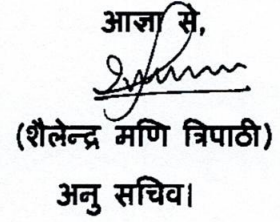 आज्ञा से,
(शैलेन्द्र मणि त्रिपाठी)
अनु सचिव।